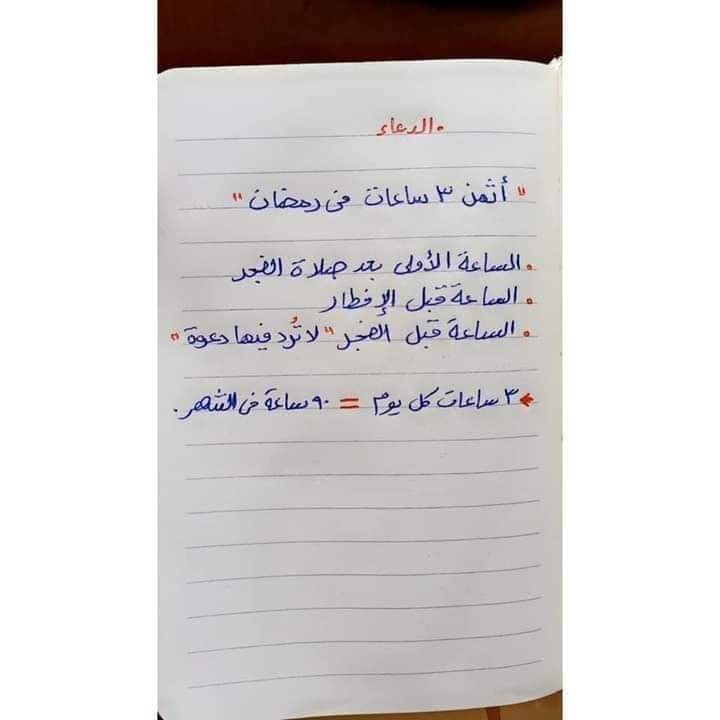 • الدعاء
"أثمن ٣ ساعات في رمضان"
• الساعة الأولى بعد صلاة الفجر
• الساعة قبل الإفطار
• الساعة قبل الفجر "لا تُرد فيها دعوة"
٣ ساعات كل يوم = ٩٠ ساعة في الشهر.